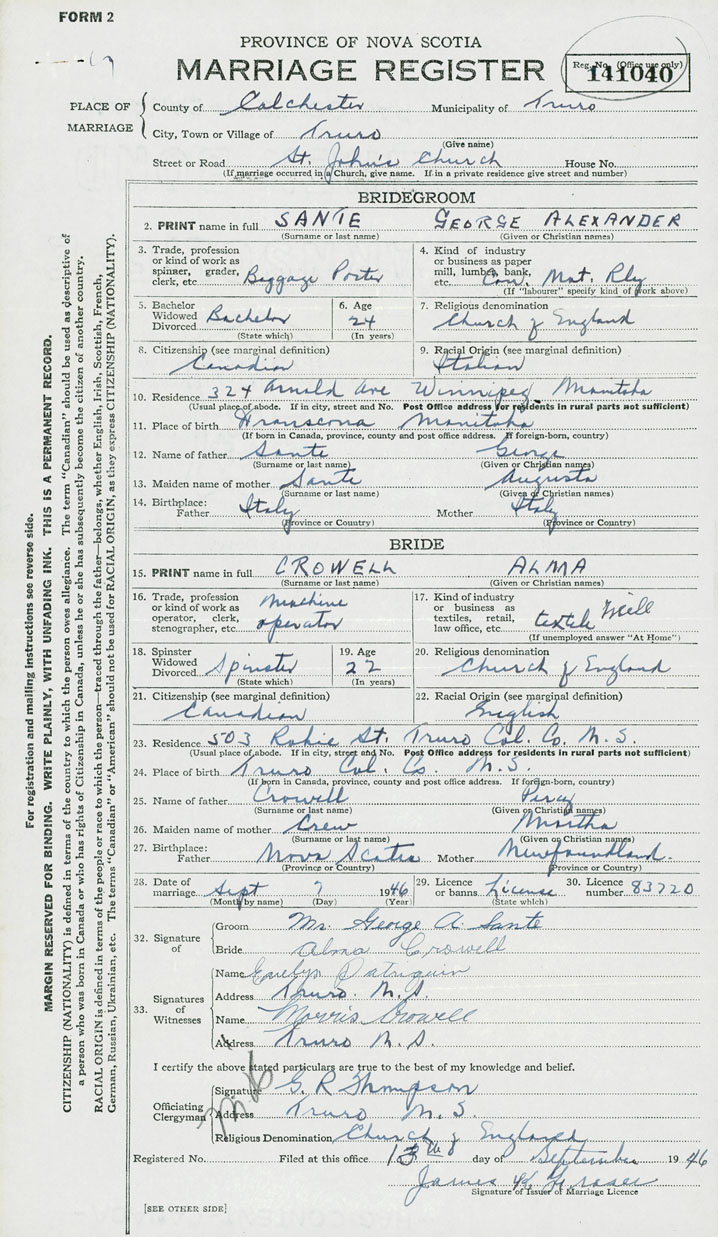 FORM 2
PROVINCE OF NOVA SCOTIA
MARRIAGE REGISTER
Reg. No. (Office use only)
141040
PLACE OF MARRIAGE
County of Colchester Municipality of Truro
City, Town or Village of Truro
(Give name)
Street or Road St. John's Church House No.
(If marriage occurred in a Church, give name. If in a private residence give street and number)
BRIDEGROOM
2. PRINT name in full SANTE GEORGE ALEXANDER
(Surname or last name) (Given or Christian names)
3. Trade, profession or kind of work as spinner, grader, clerk, etc. Baggage Porter
4. Kind of industry or business as paper mill, lumber, bank, etc. Can. Nat. Rly
(If "labourer" specify kind of work above)
5. Bachelor Widowed Divorced Bachelor
(State which)
6. Age 24
(In years)
7. Religious denomination
Church of England
8. Citizenship (see marginal definition)
Canadian
9. Racial Origin (see marginal definition)
Italian
10. Residence 324 Arnold Ave Winnipeg Manitoba
(Usual place of abode. If in city, street and No. Post Office address for residents in rural parts not sufficient)
11. Place of birth Transcona Manitoba
(If born in Canada, province, county and post office address. If foreign-born, country)
12. Name of father Sante George
(Surname or last name) (Given or Christian names)
13. Maiden name of mother Sante Augusta
(Surname or last name) (Given or Christian names)
14. Birthplace: Father Italy Mother Italy
(Province or Country) (Province or Country)
BRIDE
15. PRINT name in full CROWELL ALMA
(Surname or last name) (Given or Christian names)
16. Trade, profession or kind of work as operator, clerk, stenographer, etc. Machine operator
17. Kind of industry or business as textiles, retail, law office, etc. textile Mill
(If unemployed answer "At Home")
18. Spinster Widowed Divorced Spinster
(State which)
19. Age 22
(In years)
20. Religious denomination
Church of England
21. Citizenship (see marginal definition)
Canadian
22. Racial Origin (see marginal definition)
English
23. Residence 503 St. Truro Col. Co. N. S.
(Usual place of abode. If in city, street and No. Post Office address for residents in rural parts not sufficient)
24. Place of birth Truro Col. Co. N. S.
(If born in Canada, province, county and post office address. If foreign-born, country)
25. Name of father Crowell Percy
(Surname or last name) (Given or Christian names)
26. Maiden name of mother Crew Martha
(Surname or last name) (Given or Christian names)
27. Birthplace: Father Nova Scotia Mother Newfoundland.
(Province or Country) (Province or Country)
28. Date of marriage Sept 7 1946
(Month by name) (Day) (Year)
29. Licence or banns License
(State which)
30. Licence number 83720
32. Signature of
Groom Mr. George A. Sante
Bride Alma Crowell
33. Signatures of Witnesses
Name Evelyn Patriquin
Address Truro. N. S.
Name Morris Crowell
Address Truro N. S.
I certify the above stated particulars are true to the best of my knowledge and belief.
Officiating Clergyman
Signature G. R Thompson
Address Truro N. S.
Religious Denomination Church of England
Registered No. Filed at this office 13th day of September 1946
James Fraser
Signature of Issuer of Marriage Licence
[SEE OTHER SIDE]
For registration and mailing instructions see reverse side.
MARGIN RESERVED FOR BINDING. WRITE PLAINLY, WITH UNFADING INK. THIS IS A PERMANENT RECORD.
CITIZENSHIP (NATIONALITY) is defined in terms of the country to which the person owes allegiance. The term "Canadian" should be used as descriptive of
a person who was born in Canada or who has rights of Citizenship in Canada, unless he or she has subsequently become the citizen of another country.
RACIAL ORIGIN is defined in terms of the people or race to which the person—traced through the father—belongs, whether English, Irish, Scottish, French,
German, Russian, Ukrainian, etc. The terms "Canadian" or "American" should not be used for RACIAL ORIGIN, as they express CITIZENSHIP (NATIONALITY).